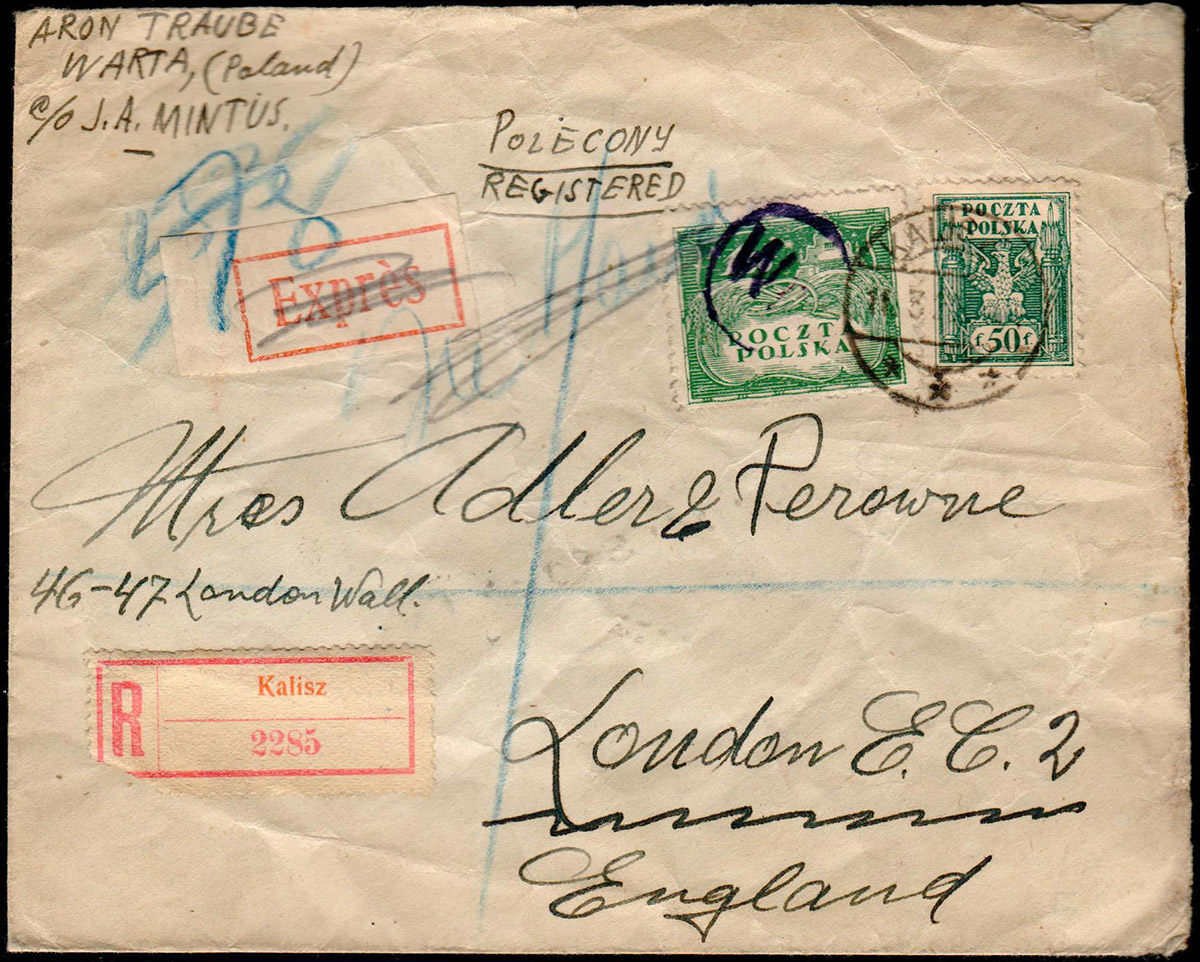 ARON TRAUBE
WARTA, (Poland)
c/o J.A. MINTUS.
POLECONY
REGISTERED
Exprès
W
POCZTA
POLSKA
POCZTA
POLSKA
f. 50 f.
Mrss Adler & Perowne
46-47 London Wall.
R
Kalisz
2285
London E.C. 2
England